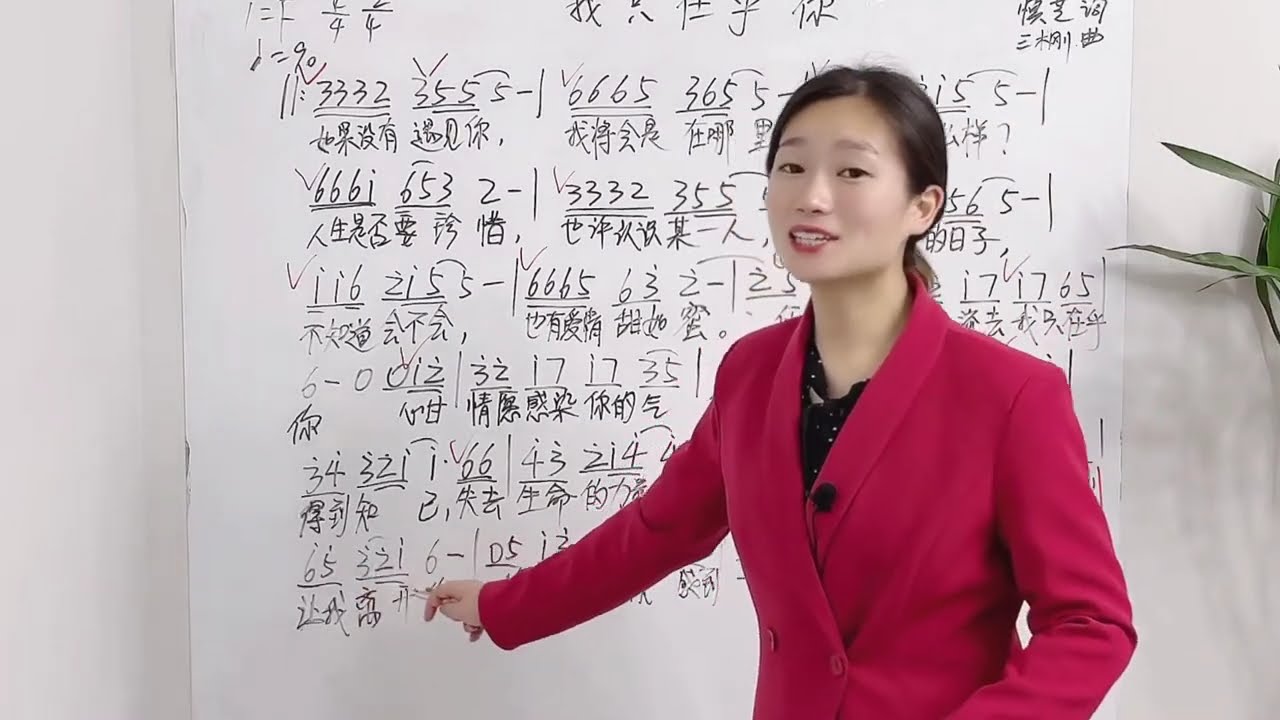 1=F 4/4 2/4 我只在乎你 慎芝 词
♩=90 三木刚 曲
‖: 3332 355 5 - | 6665 365 5 - i i5 5 - |
如果没有 遇见你， 我将会是 在哪里 么样？
666i 653 2 - | 3332 355 56 5 - |
人生是否要 珍惜， 也许认识 某一人， 的日子，
i i6 2i5 5 - | 6665 63 2 - | 25 i7 i7 65 |
不知道 会不会， 也有爱情 甜如蜜。 流去 我只在乎
6 - 0 0i2 | 32 i7 i7 35 |
你 心甘 情愿感染 你的气
34 32i i· 66 | 43 2i4
得到知 己，失去 生命的力量
65 32i 6 - | 05 i2
让我离开 感到